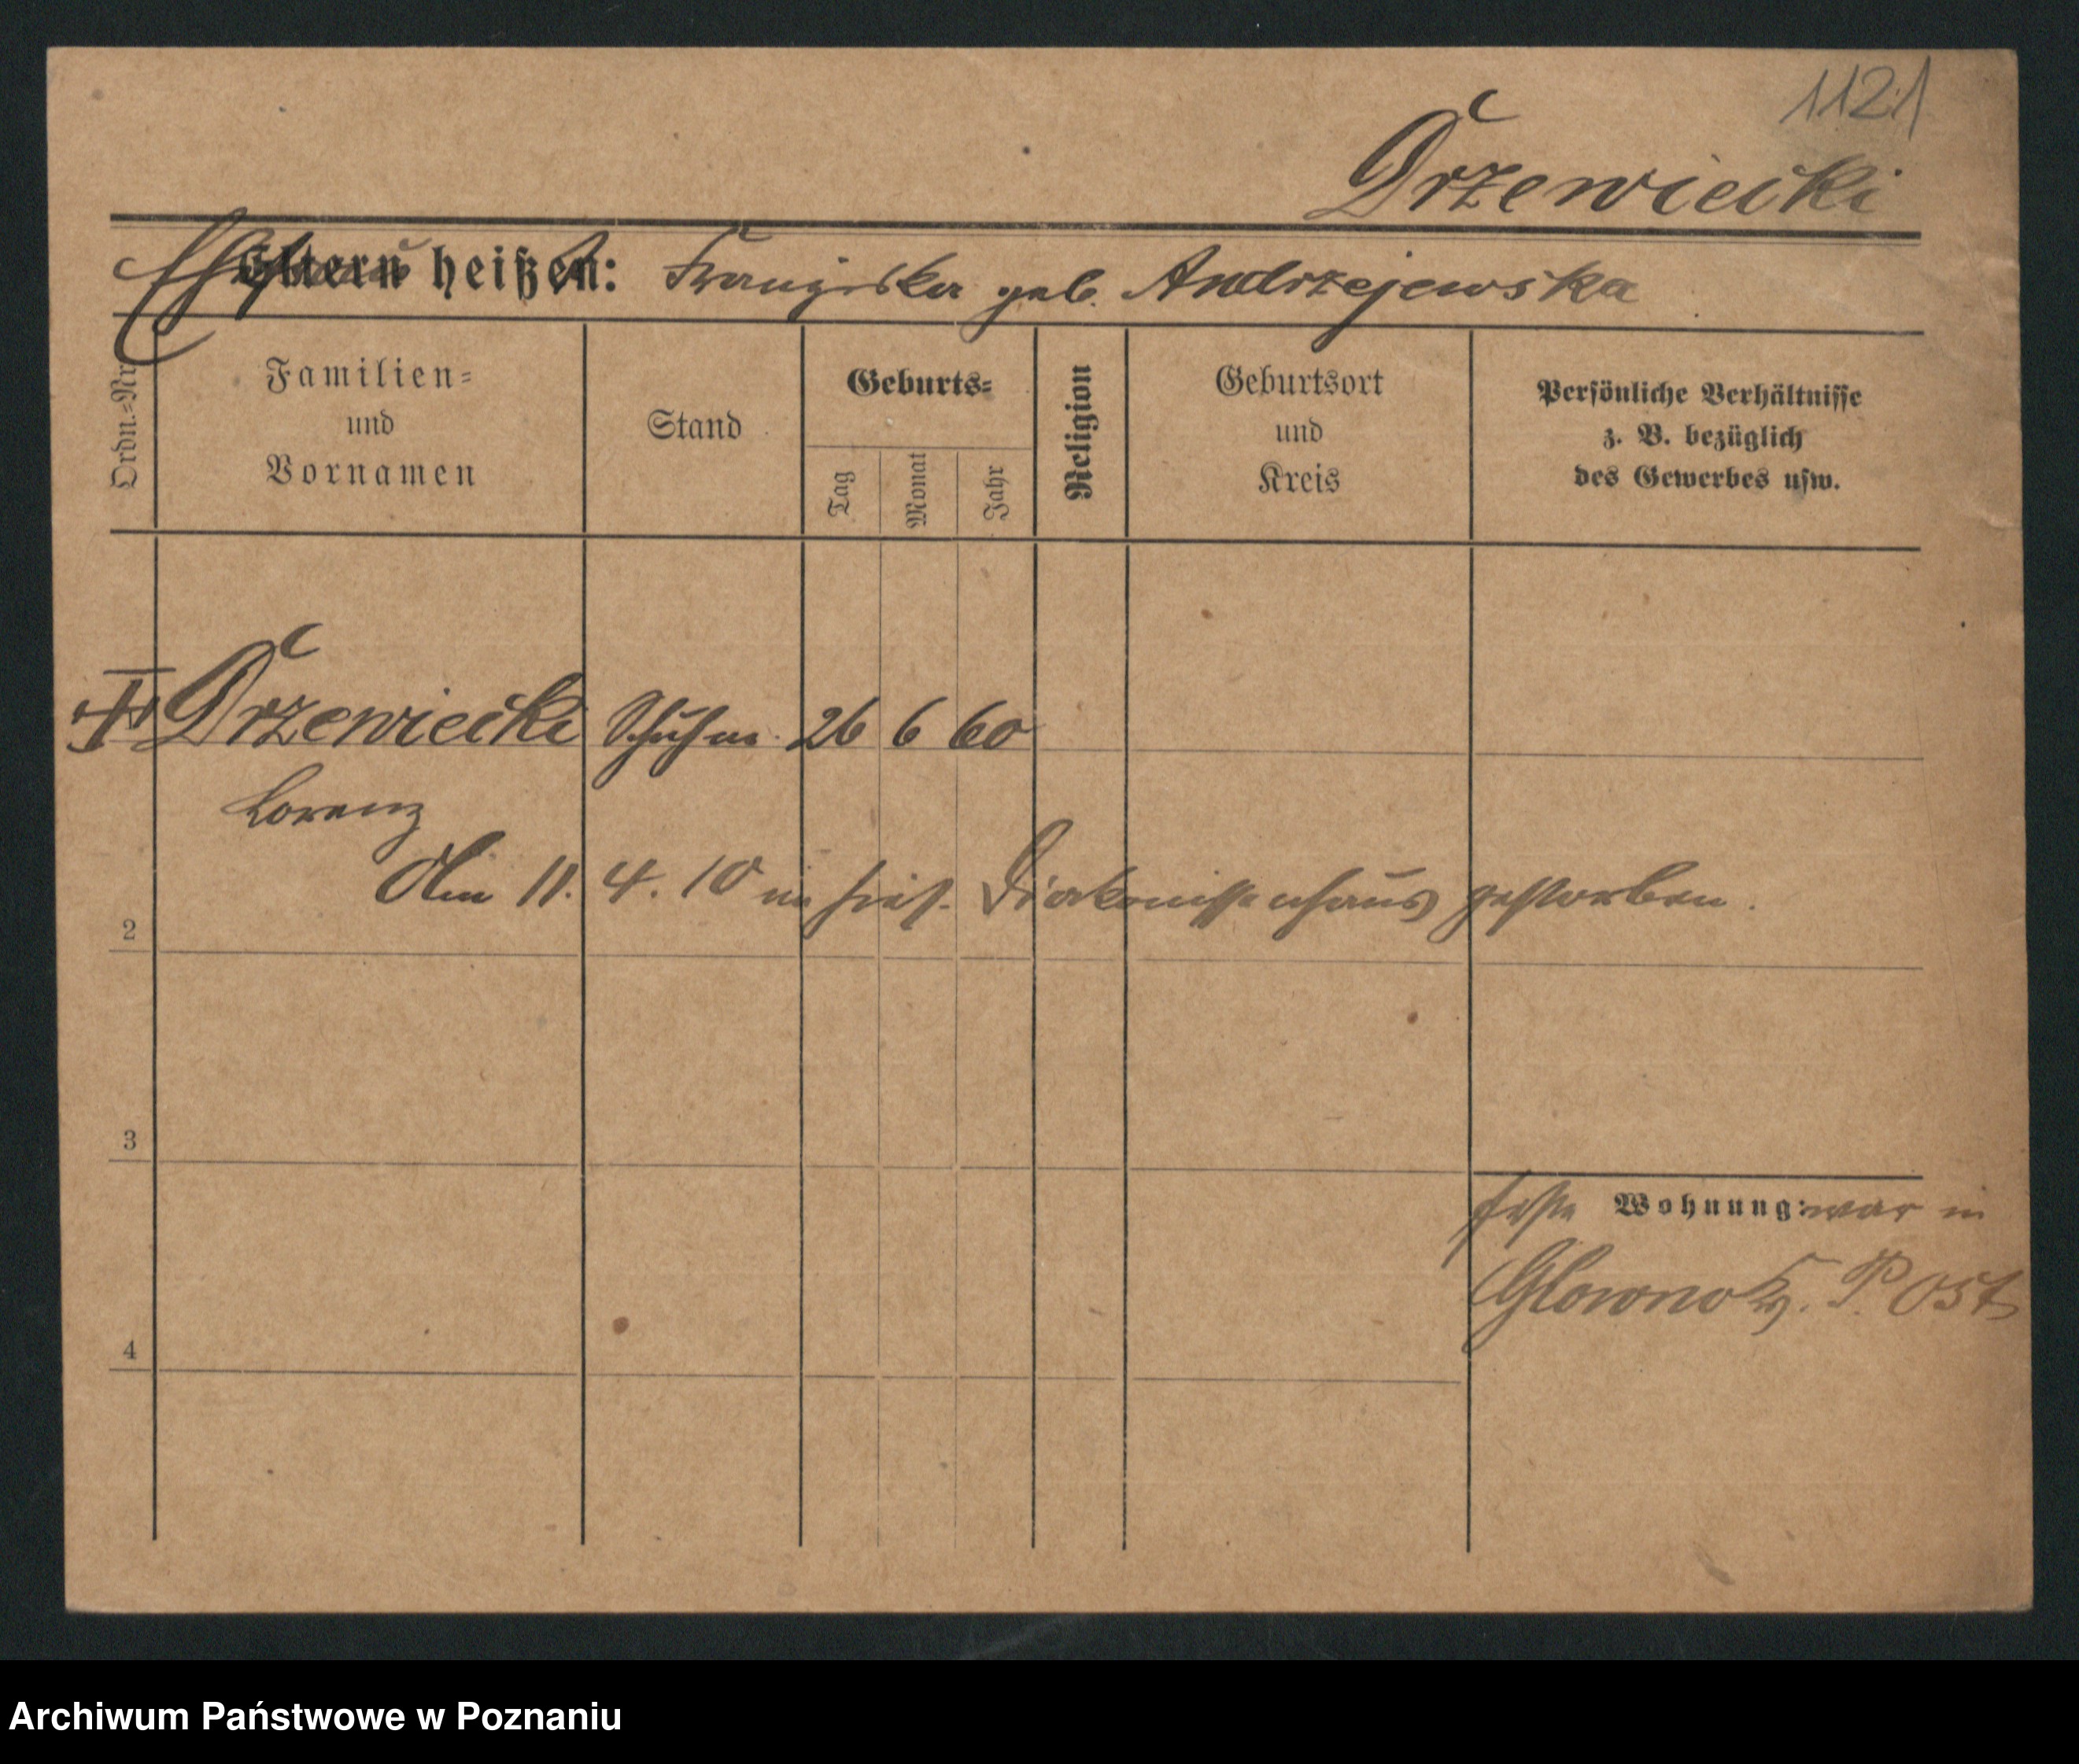 1121
Drzewiecki
Eltern heißen: Franziska geb. Andrzejewska
Ordn.-Nr.
Familien-
und
Vornamen
Stand
Geburts-
Tag
Monat
Jahr
Religion
Geburtsort
und
Kreis
Persönliche Verhältnisse
z. B. bezüglich
des Gewerbes usw.
Drzewiecki Schuhm. 26 6 60
Lorenz
Am 11. 4. 10 im hies. Diakonissenhaus gestorben.
2
3
4
feste Wohnung: war in
Glowno Kr. P. Ost
Archiwum Państwowe w Poznaniu